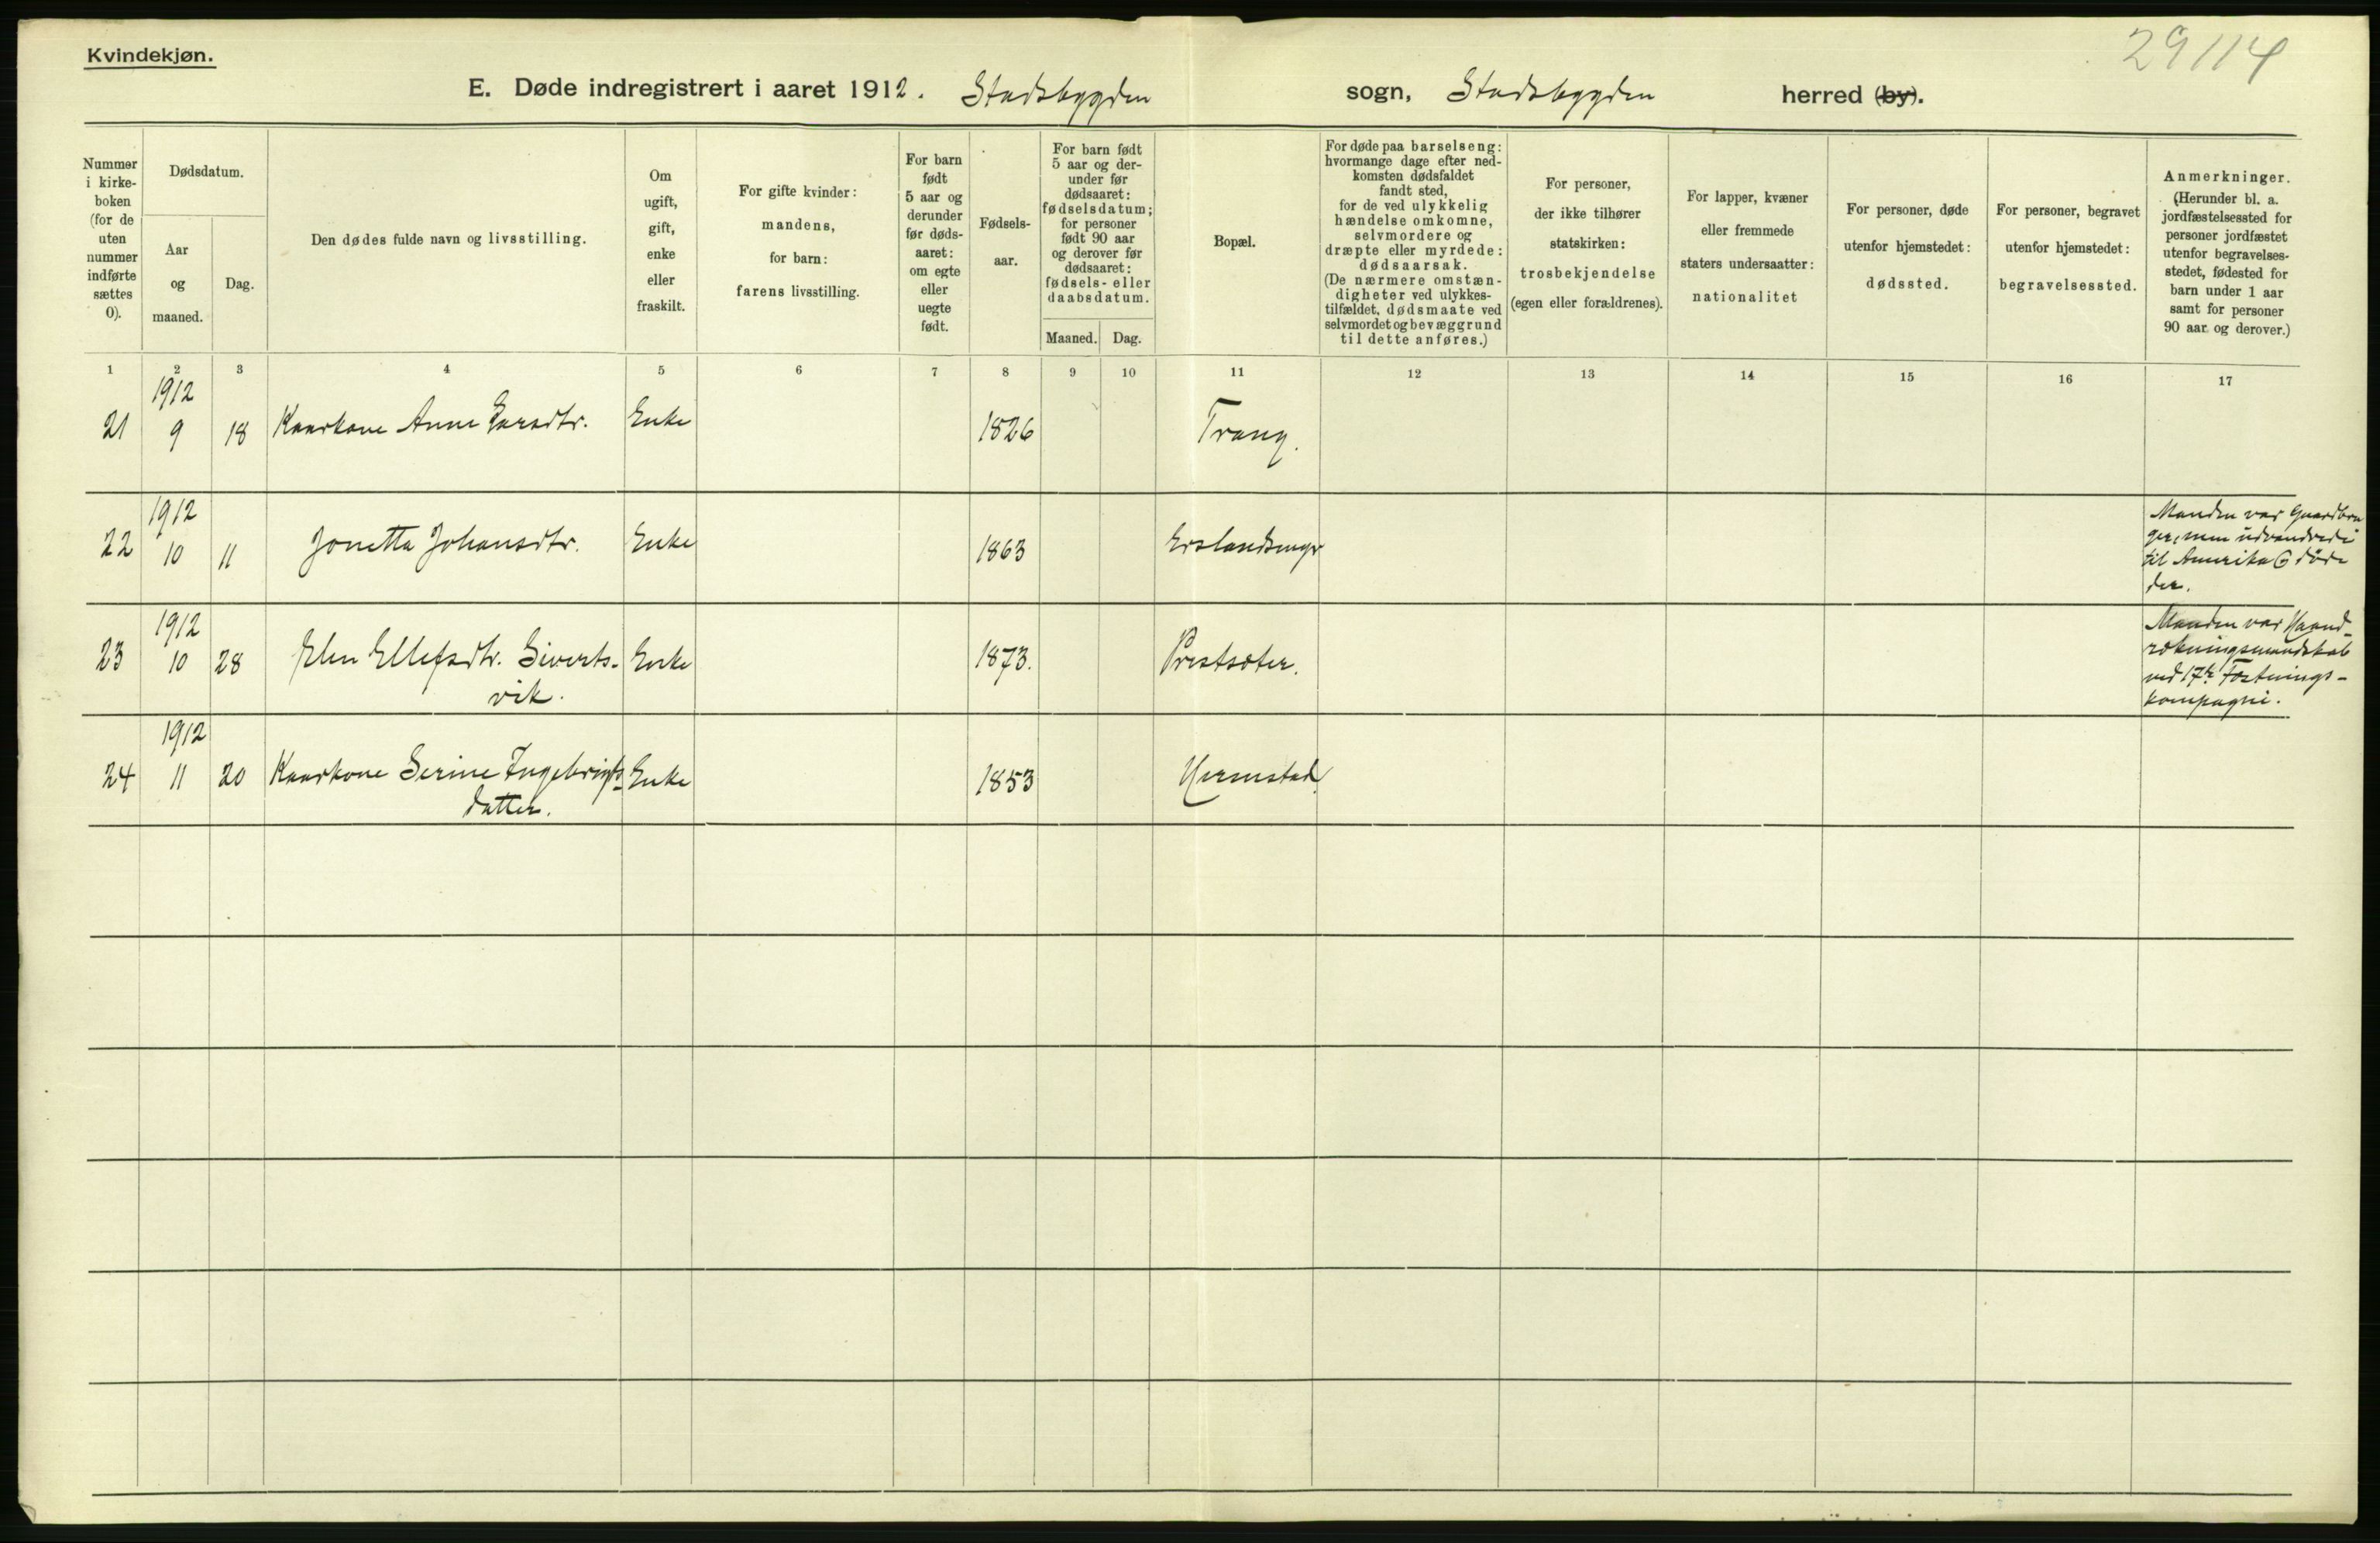 Kvindekjøn.
29114
E. Døde indregistrert i aaret 1912. Stadsbygden sogn, Stadsbygden herred (by).
Nummer i kirke-boken (for de uten nummer indførte sættes 0).
Dødsdatum.
Aar og maaned.
Dag.
Den dødes fulde navn og livsstilling.
Om ugift, gift, enke eller fraskilt.
For gifte kvinder: mandens, for barn: farens livsstilling.
For barn født 5 aar og derunder før døds-aaret: om egte eller uegte født.
Fødsels-aar.
For barn født 5 aar og der-under før dødsaaret: fødselsdatum; for personer født 90 aar og derover før dødsaaret: fødsels- eller daabsdatum.
Maaned. Dag.
Bopæl.
For døde paa barselseng: hvormange dage efter ned-komsten dødsfaldet fandt sted, for de ved ulykkelig hændelse omkomne, selvmordere og dræpte eller myrdede: dødsaarsak. (De nærmere omstæn-digheter ved ulykkes-tilfældet, dødsmaate ved selvmordet og bevæggrund til dette anføres.)
For personer, der ikke tilhører statskirken: trosbekjendelse (egen eller forældrenes).
For lapper, kvæner eller fremmede staters undersaatter: nationalitet
For personer, døde utenfor hjemstedet: dødssted.
For personer, begravet utenfor hjemstedet: begravelsessted.
Anmerkninger. (Herunder bl. a. jordfæstelsessted for personer jordfæstet utenfor begravelses-stedet, fødested for barn under 1 aar samt for personer 90 aar og derover.)
1 2 3 4 5 6 7 8 9 10 11 12 13 14 15 16 17
1912
21 9 18 Kaarkone Anne Larsdtr. Enke 1826 Trang.
1912
22 10 11 Jonetta Johansdtr. Enke 1863
Manden var Gaardbru
ger, men udvandrede
til Amerika & døde
der.
1912
23 10 28 Elen Ellefsdtr. Siverts- Enke 1873. Prestsæter.
vik.
Manden var Haand-
rækningsmandskab
ved 17de Fæstnings-
kompagni.
1912
24 11 20 Kaarkone Serine Ingebrigts- Enke 1853
datter.